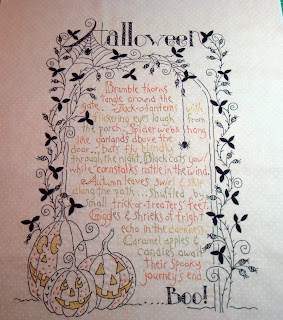 Halloween
Bramble thorns
tangle around the
gate... Jack-o-lanterns with
flickering eyes laugh from
the porch. Spiderwebs hang
like garlands above the
door... bats fly blindly
through the night. Black cats yowl
while cornstalks rattle in the wind.
Autumn leaves swirl & skip
along the path... shuffled by
small trick-or-treaters' feet.
Giggles & shrieks of fright
echo in the darkness.
Caramel apples &
candies await
their spooky
journey's end.
...Boo!